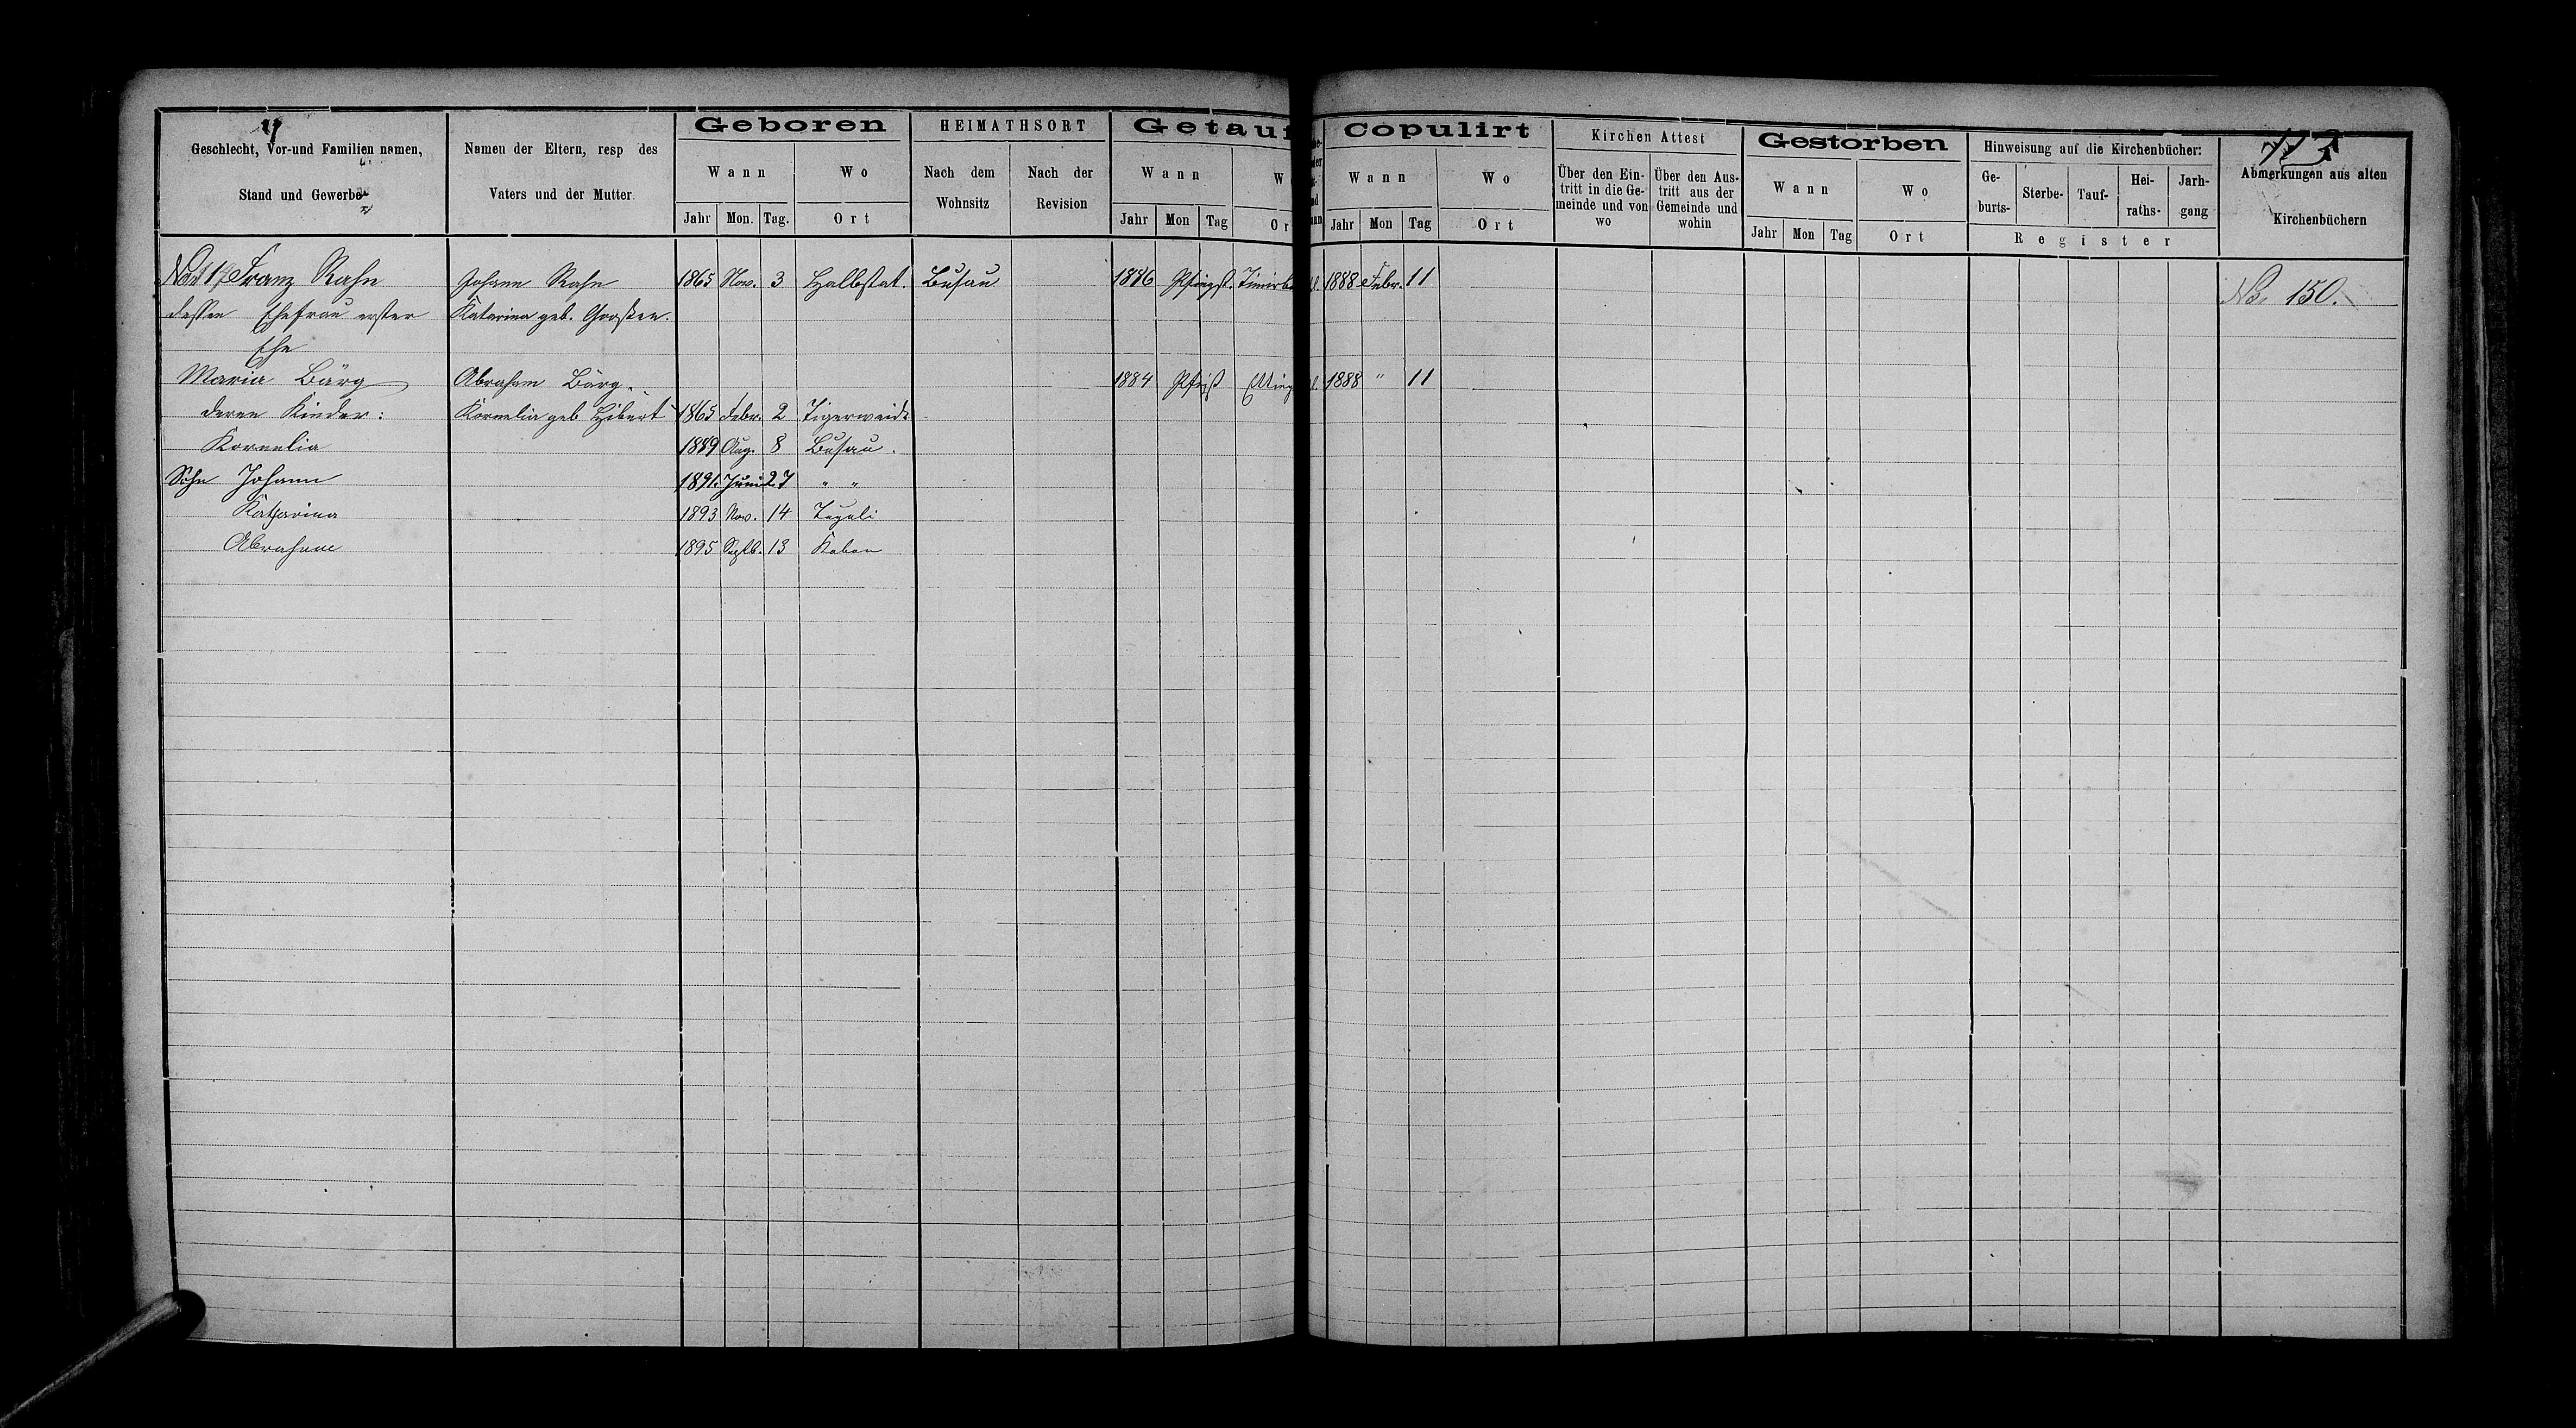 113
Geschlecht, Vor-und Familien namen,
Stand und Gewerbe
Namen der Eltern, resp des
Vaters und der Mutter
Geboren
Wann
Wo
Jahr Mon. Tag. Ort
HEIMATHSORT
Nach dem
Wohnsitz
Nach der
Revision
Getauf
Wann
W
Jahr Mon Tag Or
Copulirt
Wann
Wo
Jahr Mon Tag Ort
Kirchen Attest
Über den Ein-
tritt in die Ge-
meinde und von
wo
Über den Aus-
tritt aus der
Gemeinde und
wohin
Gestorben
Wann
Wo
Jahr Mon Tag Ort
Hinweisung auf die Kirchenbücher:
Ge-
burts-
Sterbe-
Tauf-
Hei-
raths-
Jarh-
gang
Register
Abmerkungen aus alten
Kirchenbüchern
Franz Rahn Johann Rahn 1865 Nov. 3 Halbstat. Busau 1886 Pfingst. 1888 Febr. 11 No. 150.
dessen Ehefrau erster Katarina geb. Goosen.
Ehe
Maria Bärg Abraham Bärg. 1884 Pfgst 1888 " 11
deren Kinder: Kornelia geb Hibert 1865 Febr. 2 Tigerweide
Kornelia 1889 Aug. 8 Busau.
Sohn Johann 1891. Juni 27 " "
Katharina 1893 Nov. 14
Abraham 1895 Septb. 13